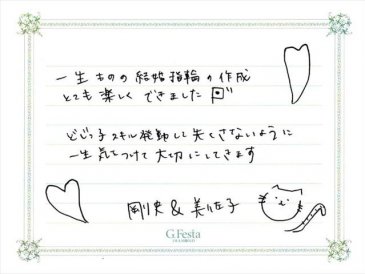 一生ものの結婚指輪の作成
とても楽しくできました
どじっ子スキル発動して失くさないように
一生気をつけて大切にしてきます
剛史&美佐子
G.Festa